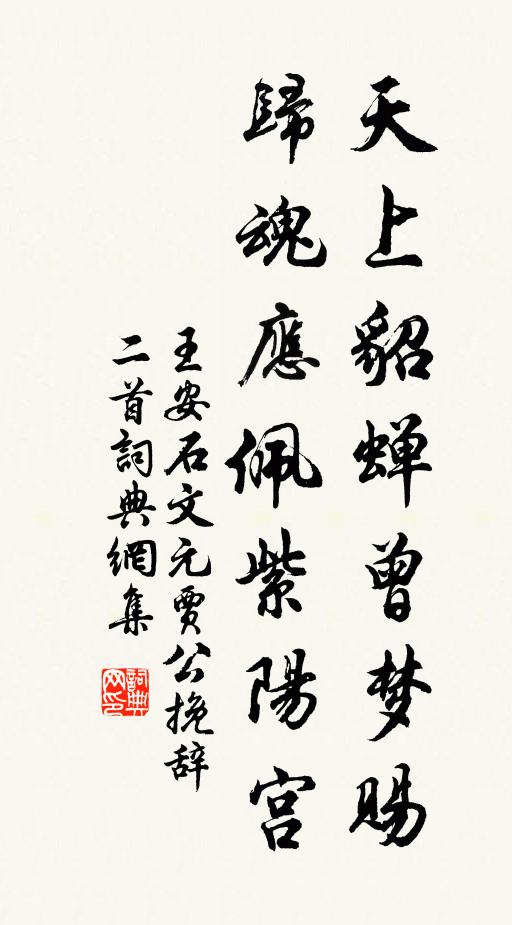 天上貂蝉曾梦賜
歸魂應佩紫陽宫
王安石文元賈公挽辞
二首詞典網集
詞典
网印